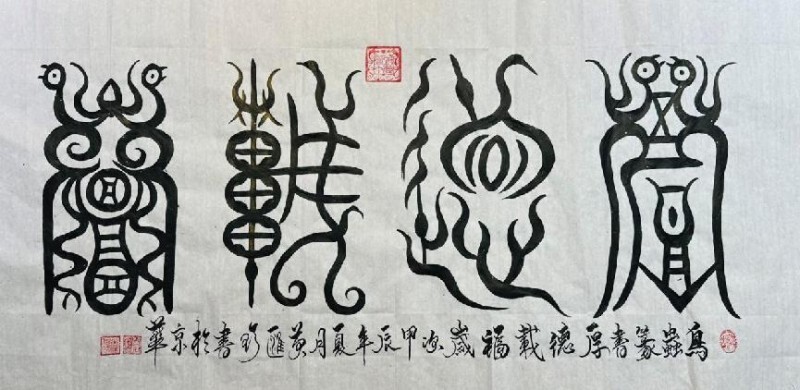 厚德載福
鳥蟲篆書厚德載福歲次甲辰年夏月黄匯書於京華